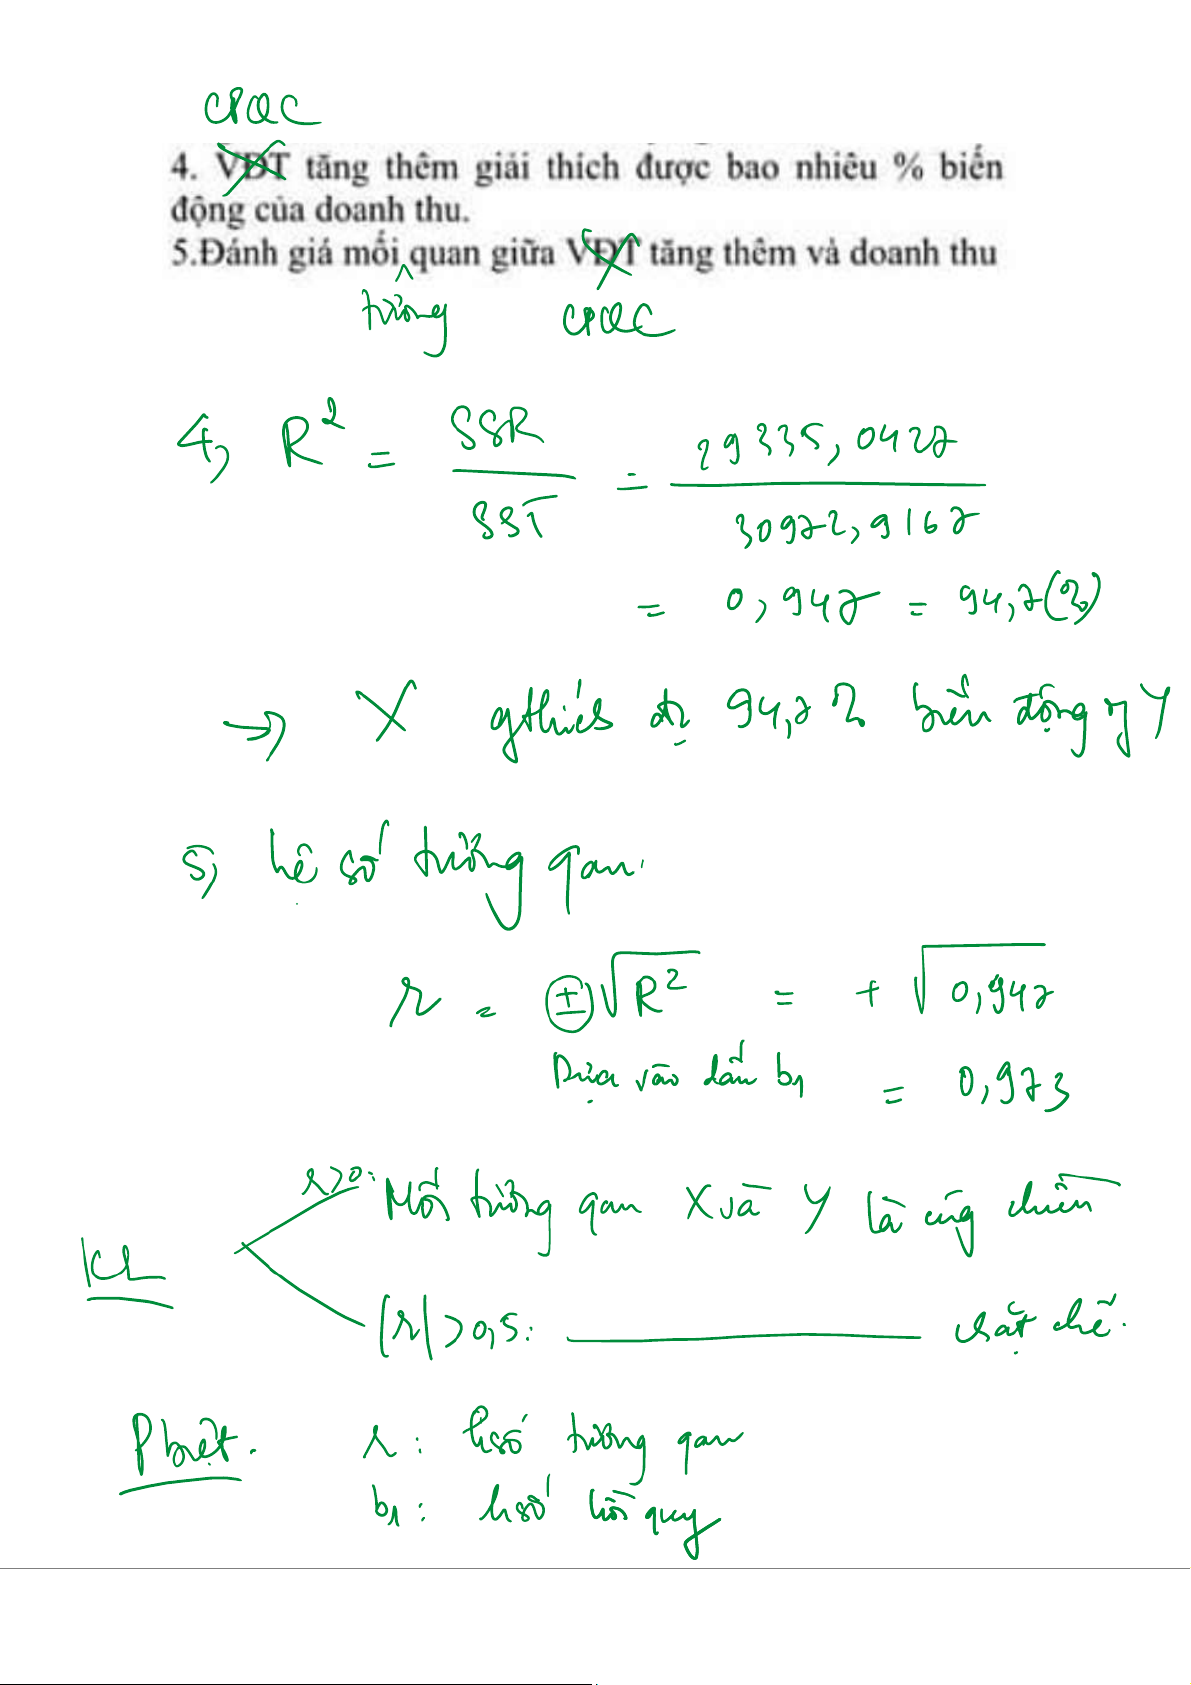 CPQC
4. VĐT tăng thêm giải thích được bao nhiêu % biến
động của doanh thu.
5.Đánh giá mối quan giữa VĐT tăng thêm và doanh thu
tương CPQC
4, R² = SSR / SST = 29335,0427 / 30972,9167
= 0,947 = 94,7(%)
→ X gthích đc 94,7% biến động Y
5, hệ số tương quan:
r = ±√R² = +√0,947
Dựa vào dấu b1 = 0,973
r>0: Mối tương quan X và Y là cùng chiều
KL
|r|>0,5: chặt chẽ.
Pbiệt. r: hsố tương quan
b1: hsố hồi quy